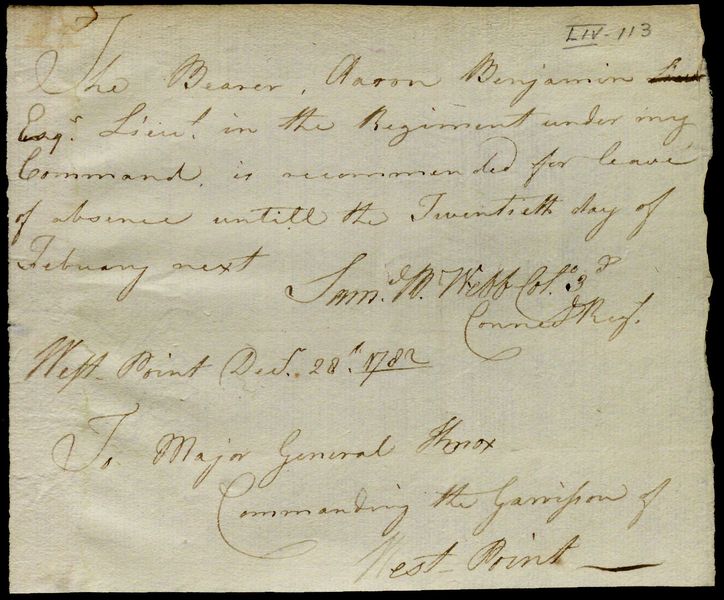 LIV-113
The Bearer, Aaron Benjamin
Esqr. Lieut. in the Regiment under my
Command, is recommended for leave
of absence untill the Twentieth day of
Febuary next
Saml. B. Webb Col. 3d
Connect. Regt.
West-Point Decr. 28th. 1782
To Major General Knox
Commanding the Garrison of
West-Point